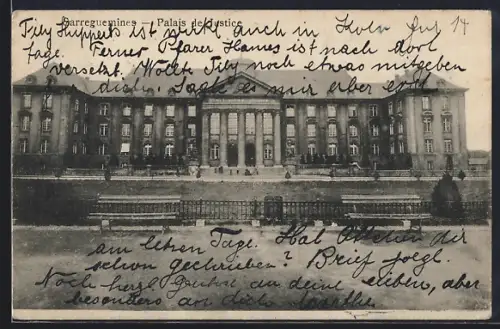 Sarreguemines — Palais de Justice
Tily Huppert ist wirkl auch in Koln
Ferner Pfarer Hames ist nach dort
versetzt. Wollt Tily noch etwas mitgeben
für dich. Sagte es mir aber erst
am letzen Tage. Hat dir
schon geschrieben? Brief folgt.
Noch herzl Grüße an deine lieben, aber
besonders an dich